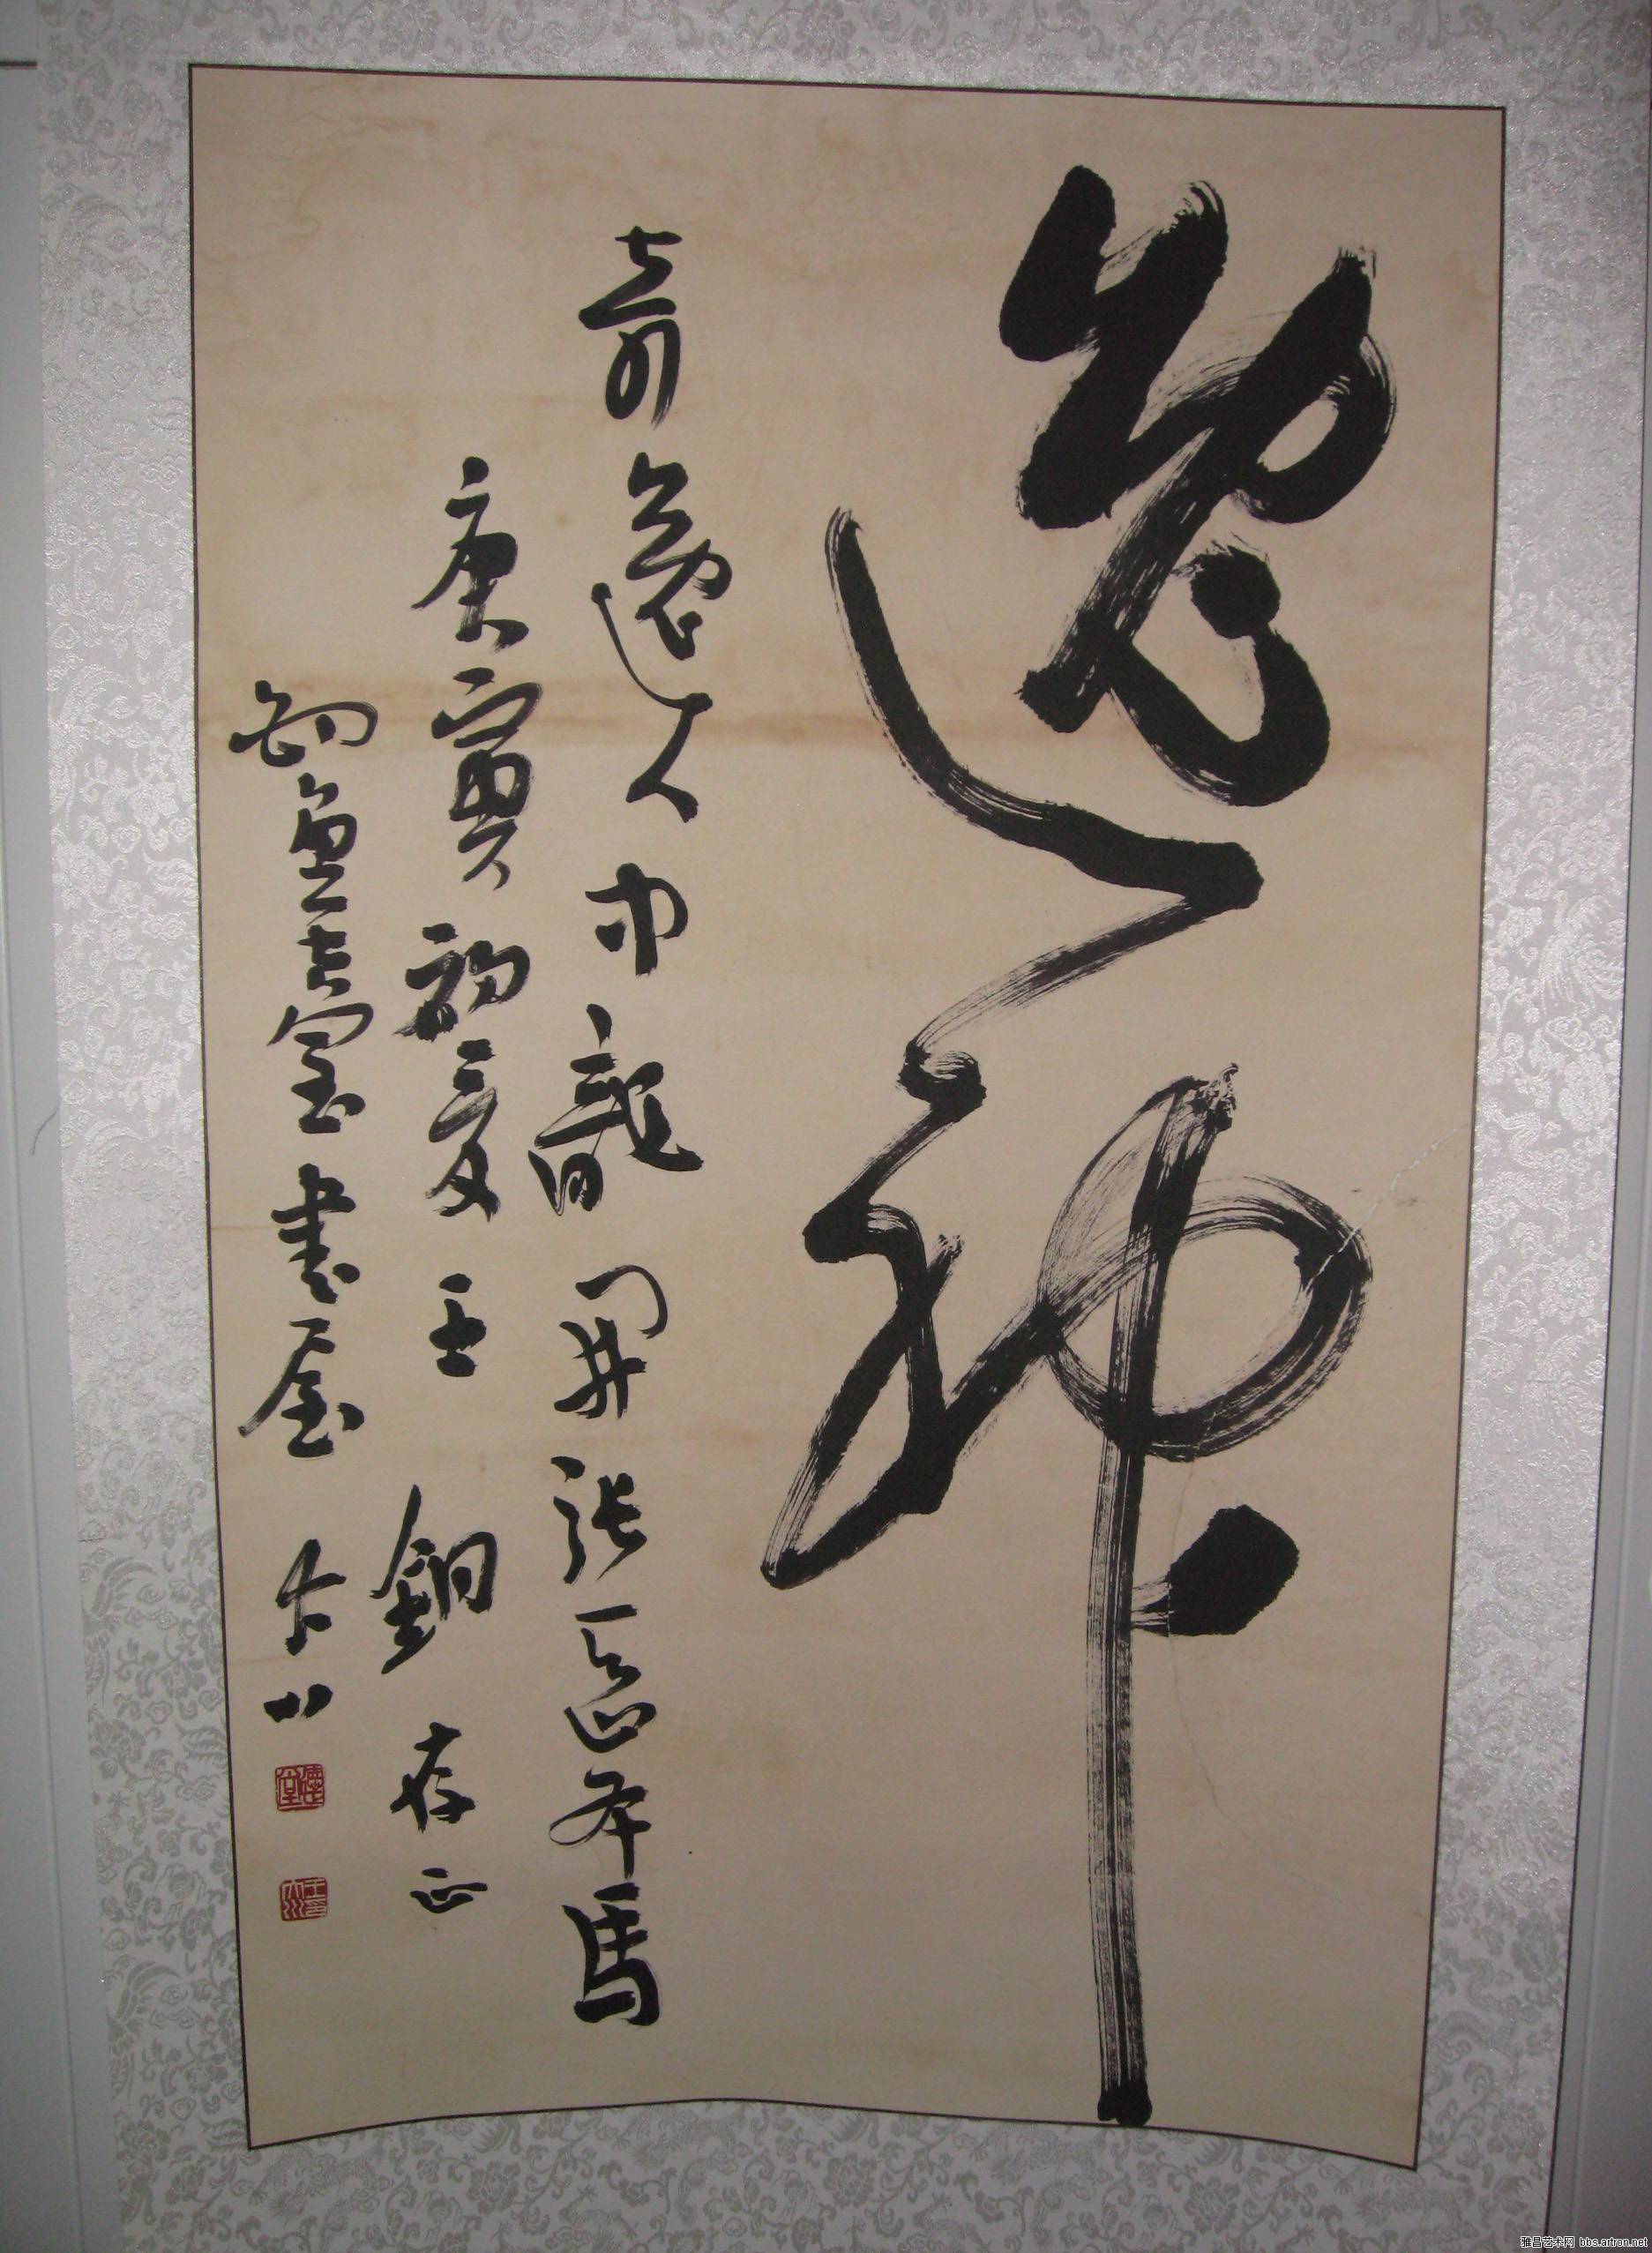 逸神
奇逸人中龍開張天岸馬
庚寅初夏王存正
釣魚臺書屋
雅昌艺术网 bbs.artron.net